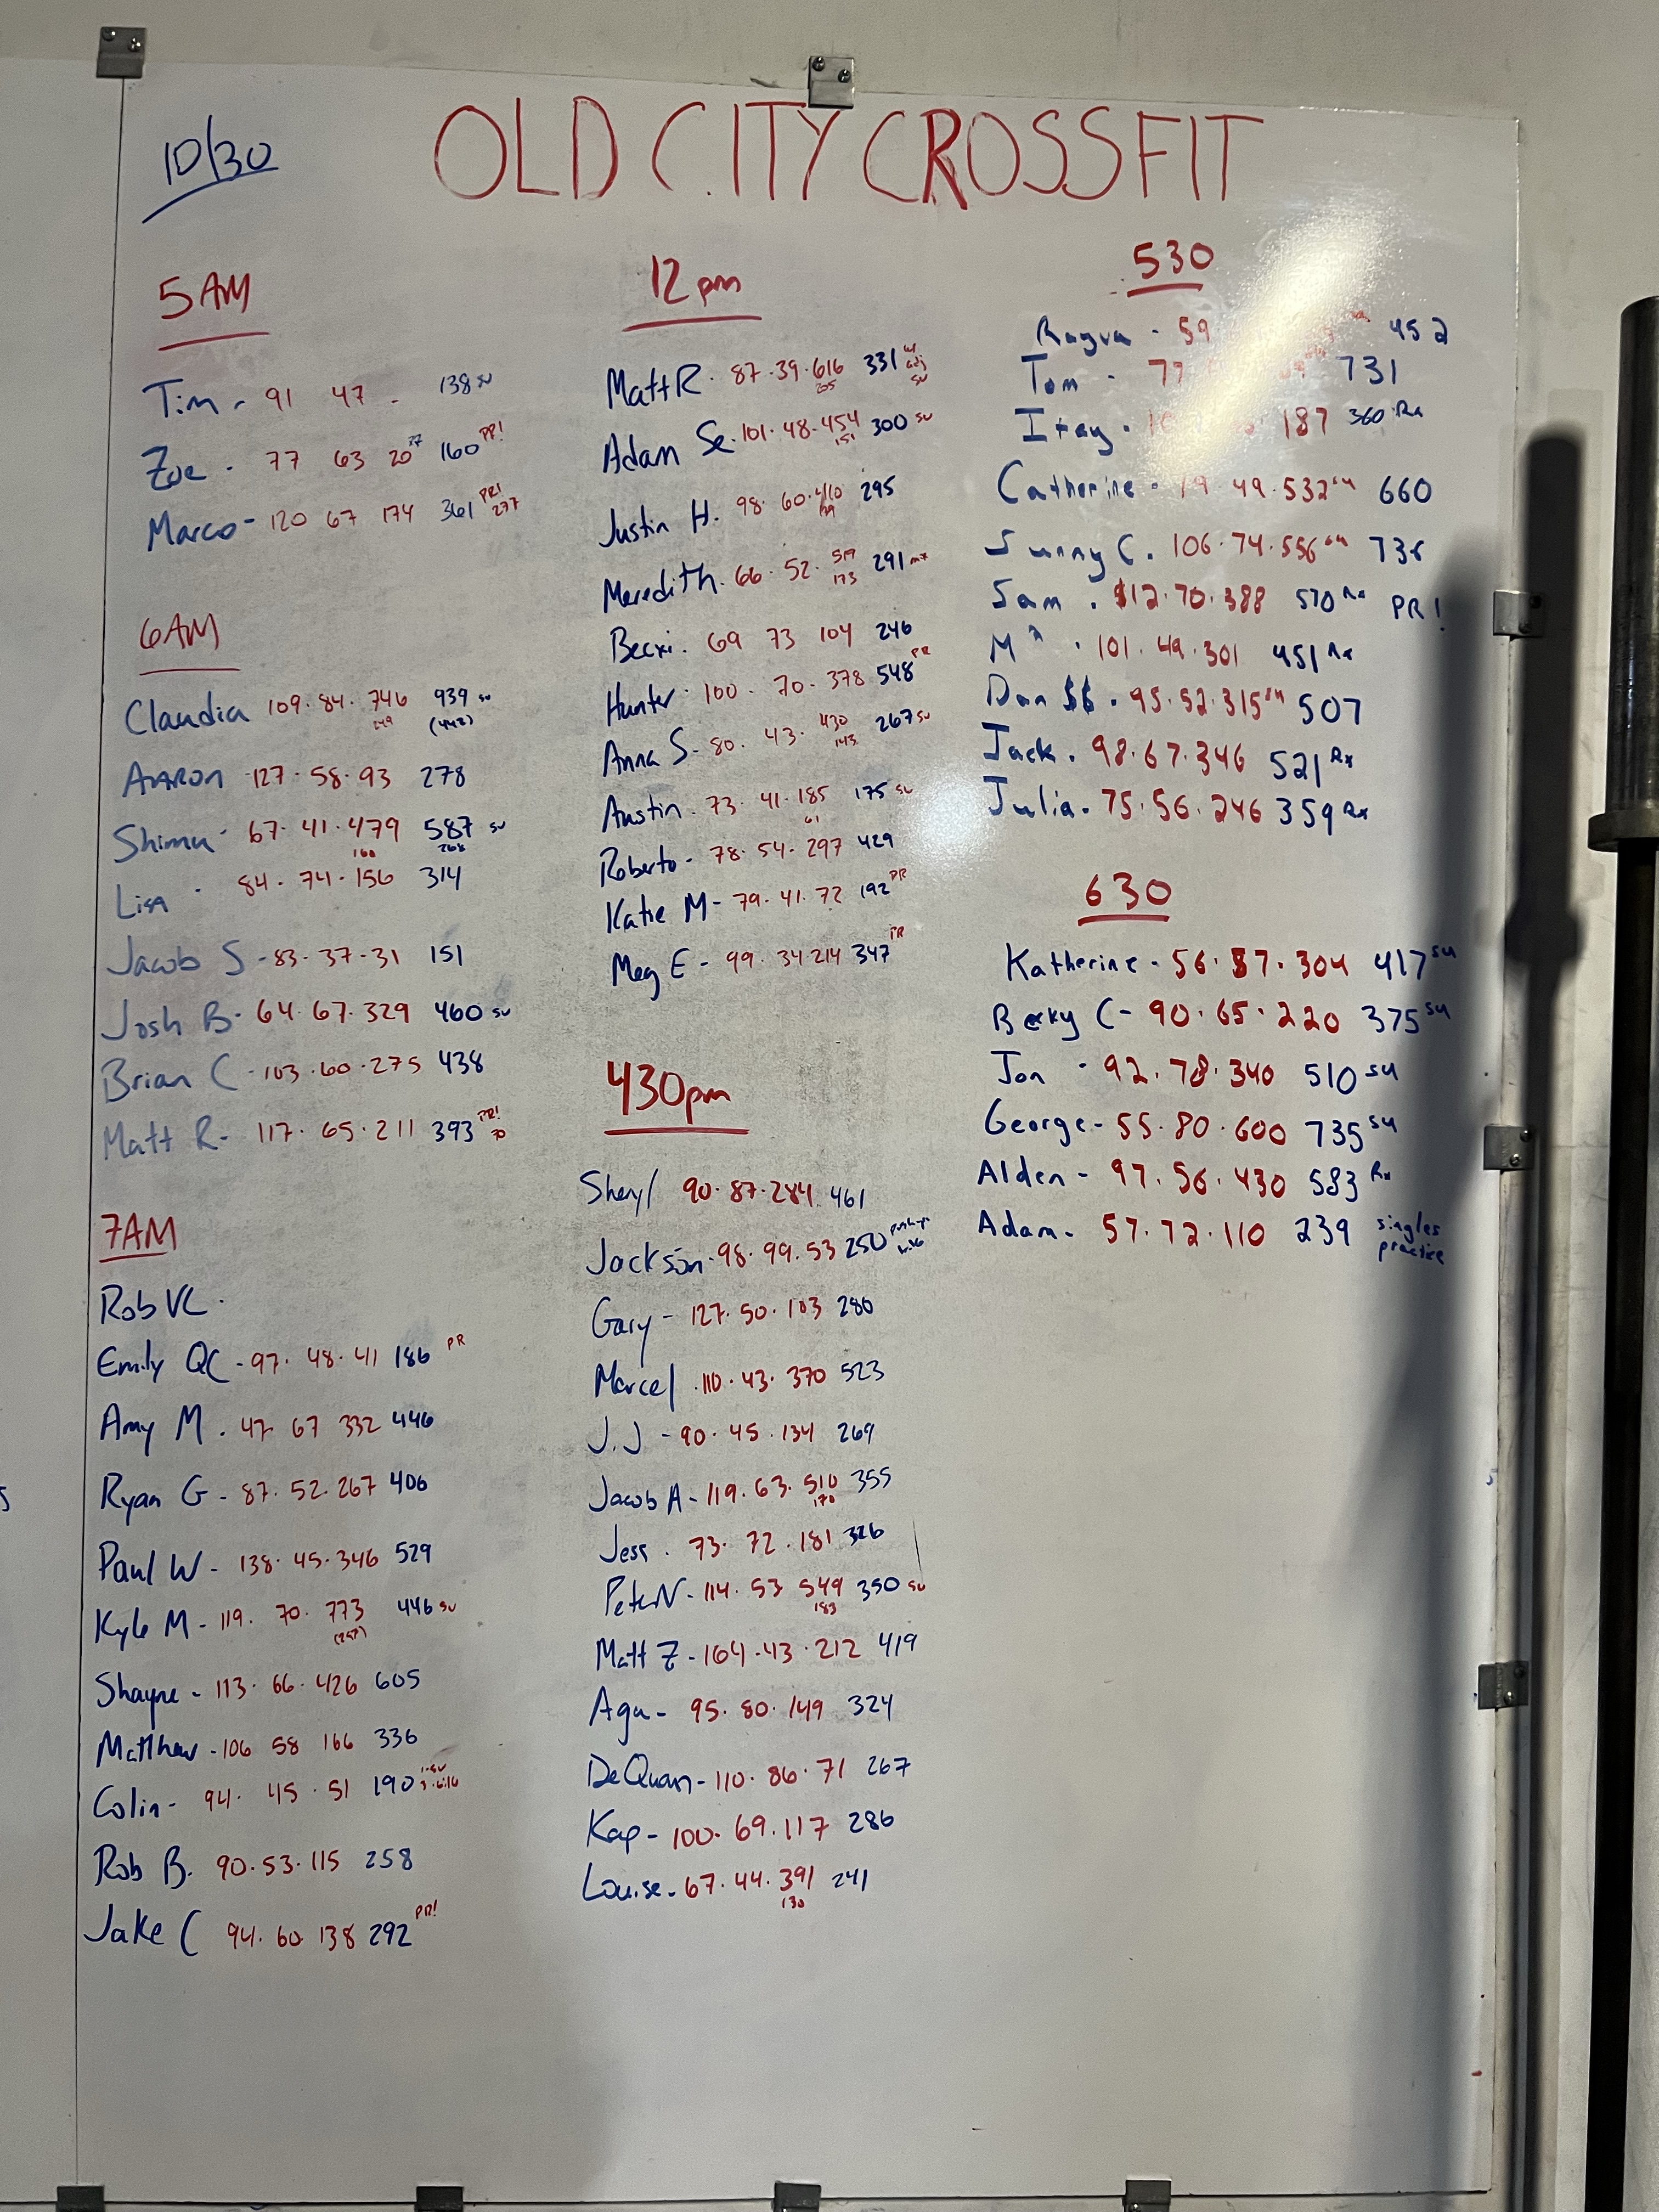 10/30
OLD CITY CROSSFIT
5 AM
Tim - 91 47 - 138 SU
Zoe - 77 63 20 160 PR!
Marco - 120 67 174 361 PR! 277
6AM
Claudia 109. 84. 746 939 SU
249 (442)
AARON 127 . 58 . 93 278
Shimu - 67. 41. 479 587 SU
160 268
Lisa - 84. 74. 156 314
Jacob S - 83 . 37 . 31 151
Josh B - 64. 67. 329 460 SU
Brian C - 103 . 60 . 275 438
Matt R - 117. 65. 211 393 PR!
7AM
Rob VC .
Emily QC - 97. 48. 41 186 PR
Amy M . 47 67 332 446
Ryan G - 87. 52. 267 406
Paul W - 138. 45. 346 529
Kyle M - 119. 70. 773 446 SU
(257)
Shayne - 113. 66. 426 605
Matthew - 106 58 166 336
Colin - 94. 45 . 51 190
Rob B. 90. 53. 115 258
Jake C 94. 60. 138 292 PR!
12 pm
Matt R. 87. 39. 616 331 w/ adj SU
205
Adam Se. 101. 48. 454 300 SU
151
Justin H. 98. 60. 410 295
Meredith. 66. 52. 519 291
173
Becki. 69 73 104 246
Hunter - 100 . 70 . 378 548 PR
Anna S - 80. 43. 430 267 SU
143
Austin . 73. 41. 185 175 SU
61
Roberto - 78. 54. 297 429
Katie M - 79. 41. 72 192 PR
Meg E - 99. 34 214 347 PR
430pm
Sheryl 90. 87. 284 461
Jackson - 98. 99. 53 250
Gary - 127. 50. 103 280
Marcel . 110. 43. 370 523
J.J - 90. 45 . 134 269
Jacob A - 119. 63. 510 355
170
Jess . 73. 72 . 181 326
Peter N - 114. 53 549 350 SU
183
Matt Z - 164. 43 . 212 419
Aga - 95. 80. 149 324
DeQuan - 110. 86. 71 267
Kap - 100. 69. 117 286
Louise - 67. 44. 391 241
130
530
Ragva - 59 452
Tom - 77 731
Itay . 187 360 Rx
Catherine - 79. 49. 532 su 660
Sunny C. 106. 74. 556 su 736
Sam . 112. 70. 388 570 Rx PR!
M . 101. 49. 301 451 Rx
Dan $$ . 95. 52. 315 su 507
Jack . 98. 67. 346 521 Rx
Julia . 75. 56. 246 359 Rx
630
Katherine - 56. 57. 304 417 su
Becky C - 90. 65. 220 375 su
Jon - 92. 78. 340 510 su
George - 55. 80. 600 735 su
Alden - 97. 56. 430 583 Rx
Adam - 57. 72. 110 239 singles practice